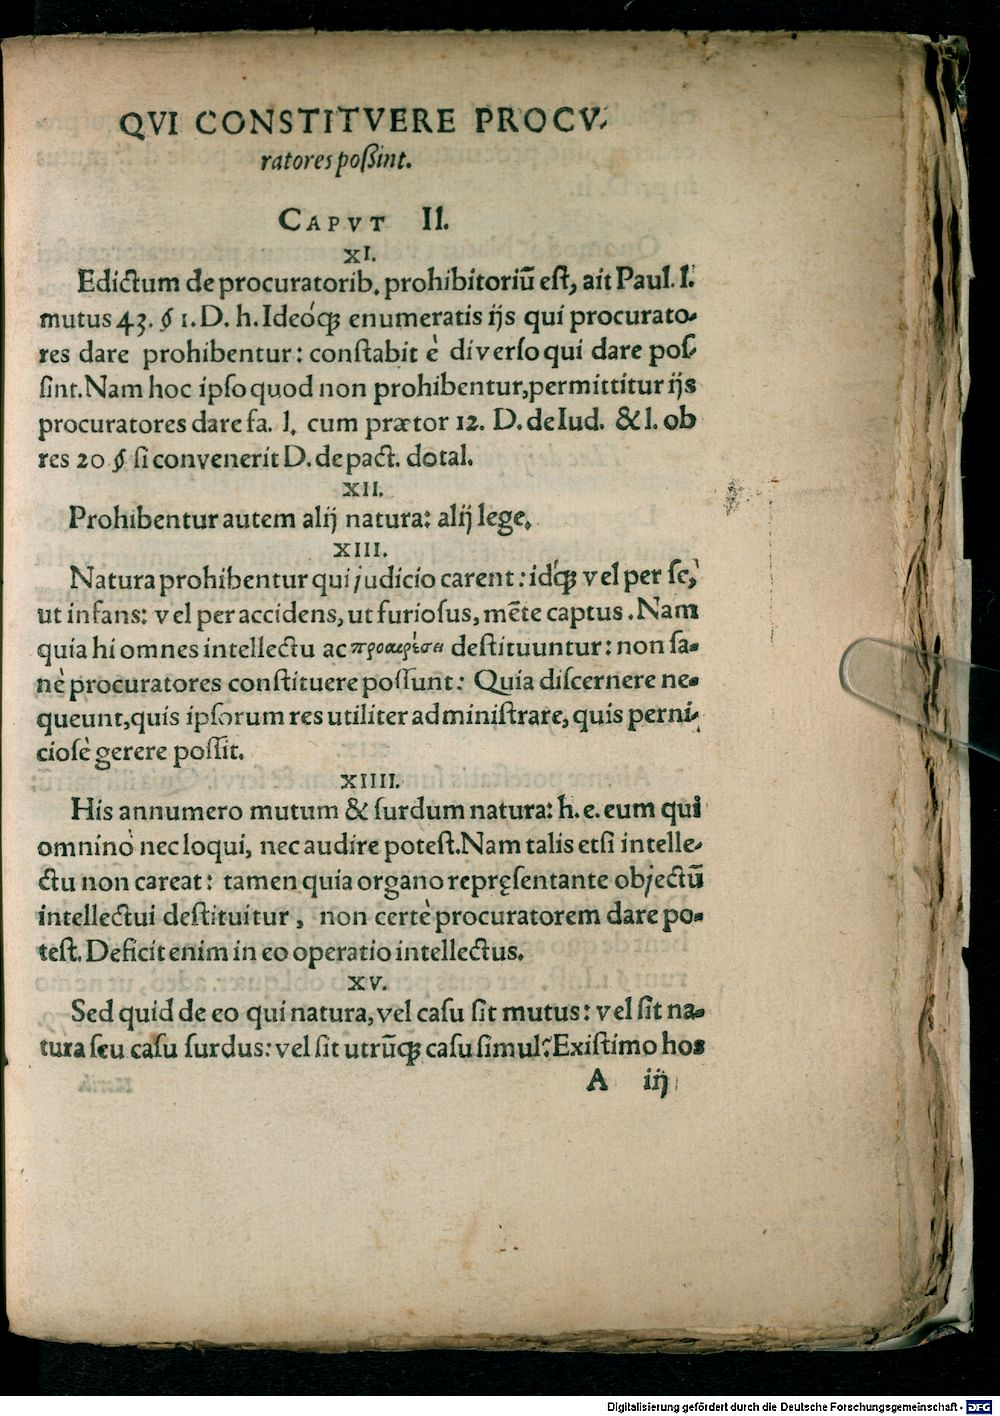 QVI CONSTITVERE PROCV-
ratores poßint.
CAPVT II.
XI.
Edictum de procuratorib. prohibitoriũ eſt, ait Paul. l.
mutus 43. § 1. D. h. Ideóq́; enumeratis ijs qui procurato-
res dare prohibentur: conſtabit è diverſo qui dare poſ-
ſint. Nam hoc ipſo quod non prohibentur, permittitur ijs
procuratores dare fa. l. cum prætor 12. D. de Iud. & l. ob
res 20 § ſi convenerit D. de pact. dotal.
XII.
Prohibentur autem alij natura: alij lege.
XIII.
Natura prohibentur qui judicio carent: idq́; vel per ſe,
ut infans: vel per accidens, ut furioſus, mẽte captus. Nam
quia hi omnes intellectu ac προαιρέσει deſtituuntur: non ſa-
nè procuratores conſtituere poſſunt: Quia diſcernere ne-
queunt, quis ipſorum res utiliter adminiſtrare, quis perni-
cioſè gerere poſſit.
XIIII.
His annumero mutum & ſurdum natura: h. e. eum qui
omninò nec loqui, nec audire poteſt. Nam talis etſi intelle-
ctu non careat: tamen quia organo repręſentante objectũ
intellectui deſtituitur, non certè procuratorem dare po-
teſt. Deficit enim in eo operatio intellectus.
XV.
Sed quid de eo qui natura, vel caſu ſit mutus: vel ſit na-
tura ſeu caſu ſurdus: vel ſit utrũq; caſu ſimul? Exiſtimo hos
A iij
Digitalisierung gefördert durch die Deutsche Forschungsgemeinschaft - DFG